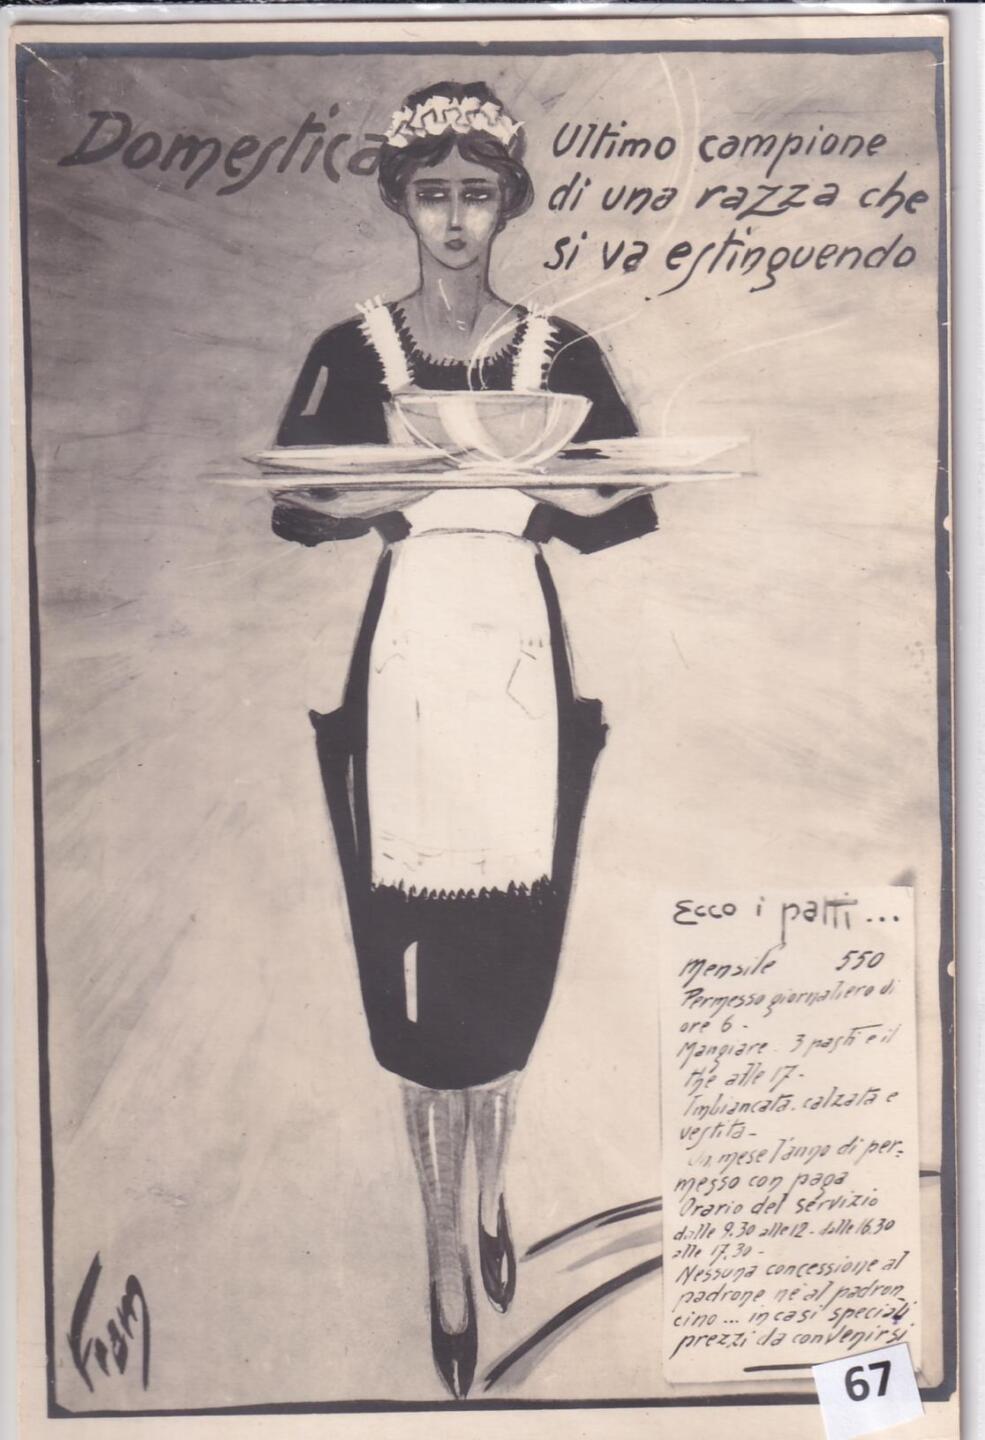 Domestica
Ultimo campione
di una razza che
si va estinguendo
Ecco i patti...
Mensile 550
Permesso giornaliero di
ore 6 -
Mangiare. 3 pasti e il
thé alle 17-
Imbiancata. calzata e
vestita-
Un mese l'anno di per=
messo con paga
Orario del servizio
dalle 9.30 alle 12 - dalle 16.30
alle 17.30 -
Nessuna concessione al
padrone né al padron_
cino... in casi speciali
prezzi da convenirsi
Fram
67